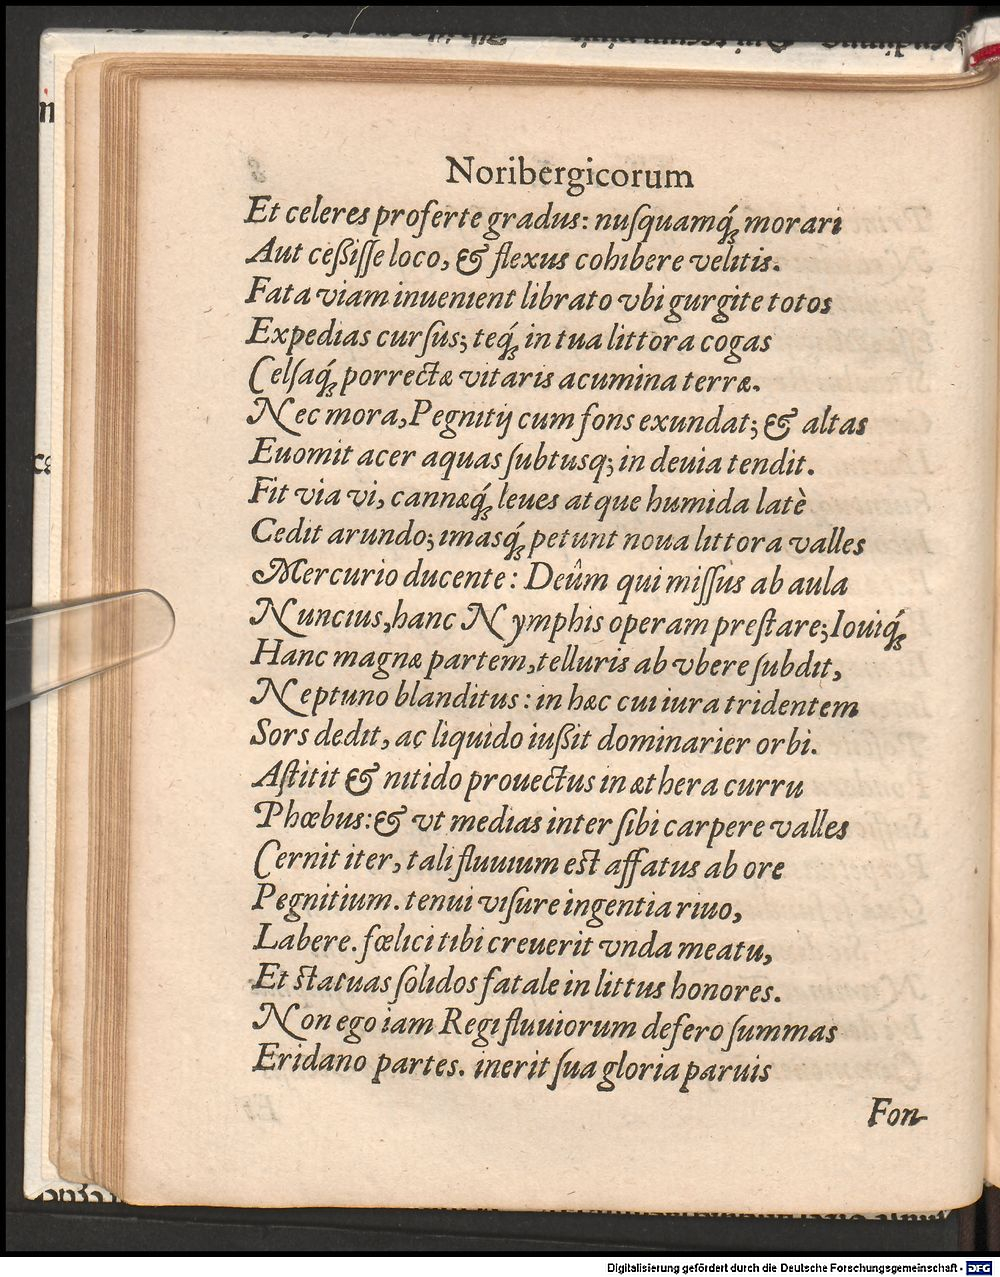 Noribergicorum
Et celeres proferte gradus: nuſquamq́; morari
Aut ceßiſſe loco, & flexus cohibere velitis.
Fata viam inuenient librato vbi gurgite totos
Expedias curſus; teq́; in tua littora cogas
Celſaq́; porrectæ vitaris acumina terræ.
Nec mora, Pegnitij cum fons exundat; & altas
Euomit acer aquas ſubtusq; in deuia tendit.
Fit via vi, cannæq́; leues atque humida latè
Cedit arundo; imasq́; petunt noua littora valles
Mercurio ducente: Deûm qui miſſus ab aula
Nuncius, hanc Nymphis operam preſtare; Iouiq́;
Hanc magnæ partem, telluris ab vbere ſubdit,
Neptuno blanditus: in hæc cui iura tridentem
Sors dedit, ac liquido iußit dominarier orbi.
Aſtitit & nitido prouectus in æthera curru
Phœbus: & vt medias inter ſibi carpere valles
Cernit iter, tali fluuium est affatus ab ore
Pegnitium. tenui viſure ingentia riuo,
Labere. fœlici tibi creuerit vnda meatu,
Et statuas ſolidos fatale in littus honores.
Non ego iam Regi fluuiorum defero ſummas
Eridano partes. inerit ſua gloria paruis
Fon-
Digitalisierung gefördert durch die Deutsche Forschungsgemeinschaft - DFG